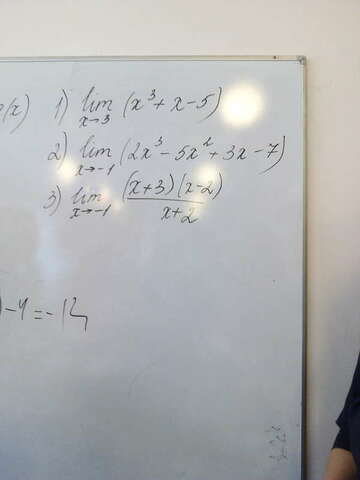 (x) 1) lim x→3 (x³ + x - 5)
2) lim x→-1 (2x³ - 5x² + 3x - 7)
3) lim x→-1 (x+3)(x-2) / x+2
) - 4 = - 12